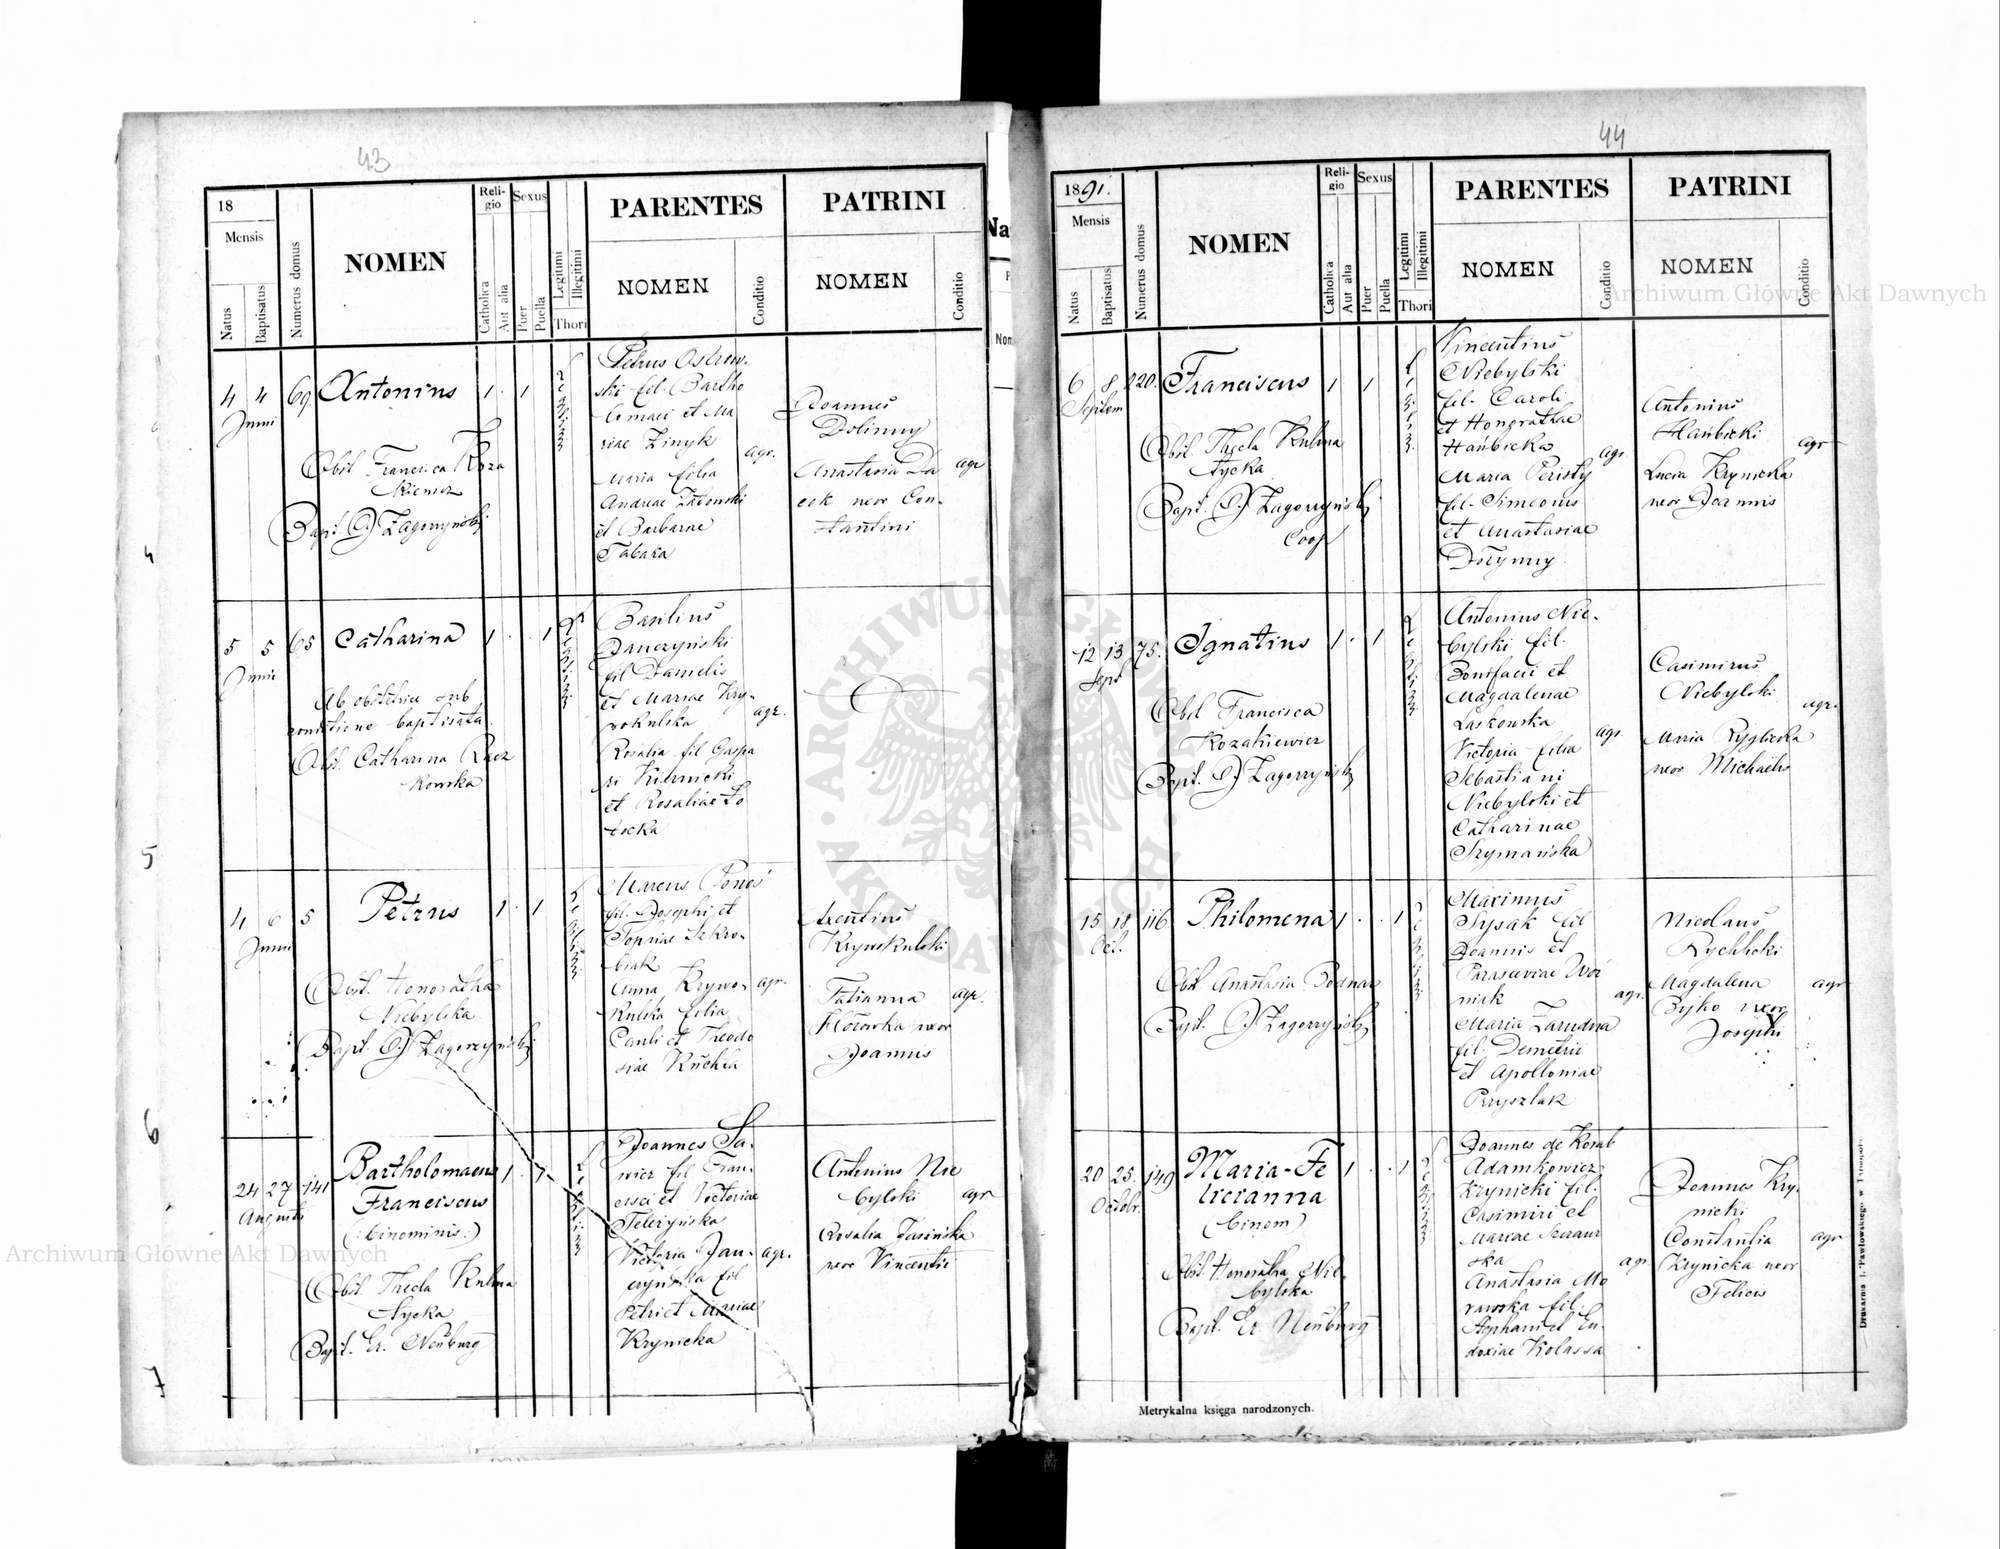 43
18
Mensis
Natus
Baptisatus
Numerus domus
NOMEN
Reli-
gio
Catholica
Aut alia
Sexus
Puer
Puella
Legitimi
Illegitimi
Thori
PARENTES
NOMEN
Conditio
PATRINI
NOMEN
Conditio
4 4 69 Antonius 1 . 1
Junii
Obst. Francisca Koza
kiewicz
Bapt. Zagorzyński
Petrus Ostrow-
ski fil. Bartho
lomaei et Ma
riae Zinyk
Maria filia
Andreae
et Barbarae
Tabaka
agr.
Joannes
Dolinny
Anastasia
uxor Con-
stantini
agr
5 5 65 Catharina 1 . . 1
Junii
Ab obstetrice sub
conditione baptisata
Obst. Catharina Racz
kowska
Basilius
Danczyński
fil Danielis
et Mariae Kry-
wokulska
Rosalia fil Gaspa
ri
et Rosaliae
agr.
4 6 5 Petrus 1 . 1
Junii
Obst. Honoratha
Niebylska
Bapt. Zagorzyński
Marcus
fil. Josephi et
Sophiae Szkro-
biak
Anna Krywo-
kulska filia
Pauli et Theodo
siae
agr.
Axentius
Krywokulski
Tatianna
uxor
Joannis
agr.
24 27 141 Bartholomaeus 1 . 1
Augusti Franciscus
(: binominis :)
Obst. Thecla Kulma
tycka
Bapt. Er. Neüburg
Joannes Sa-
wicz fil Fran-
cisci et Victoriae
Victoria Dan-
czyńska fil
Petri et Mariae
Krynicka
agr.
Antonius Nie
bylski
Rosalia Jasińska
uxor Vincentii
agr
44
1891.
Mensis
Natus
Baptisatus
Numerus domus
NOMEN
Reli-
gio
Catholica
Aut alia
Sexus
Puer
Puella
Legitimi
Illegitimi
Thori
PARENTES
NOMEN
Conditio
PATRINI
NOMEN
Conditio
6 8 220. Franciscus 1 1
Septem
Obst. Thecla Kulma
tycka
Bapt. Zagorzyński
Coop
Vincentius
Niebylski
fil. Caroli
et Honorathae
Hańbicka
Maria Peristy
fil. Simeonis
et Anastasiae
Dołynny
agr
Antonius
Hańbicki
Lucia Krynicka
uxor Joannis
agr
12 13 75. Ignatius 1 . 1
Sept
Obst Francisca
Kozakiewicz
Bapt. Zagorzyński
Antonius Nie-
bylski fil.
Bonifacii et
Magdalenae
Laskowska
Victoria filia
Sebastiani
Niebylski et
Catharinae
Szymańska
agr
Casimirus
Niebylski
Maria Ryglicka
uxor Michaelis
agr.
15 18 116 Philomena 1 . . 1
Oct.
Obst Anastasia Bodnar
Bapt. Zagorzyński
Maximus
Sysak fil
Joannis et
Parasceviae Woź
niak
Maria Zarudna
fil. Demetrii
et Apolloniae
Przyszlak
agr.
Nicolaus
Rychlicki
Magdalena
Byjko uxor
Josephi
agr
20 25. 149 Maria-Fe 1 . . 1
Octobr. licianna
(binom)
Obst Honoratha Nie-
bylska
Bapt. Er. Neüburg
Joannes de Korab
Adamkowicz
Krynicki fil.
Casimiri et
Mariae
ska
Anastasia Mo
rawska fil.
Stephani et Eu-
doxiae Kolassa
agr.
Joannes Kry-
nicki
Constantia
Krynicka uxor
Felicis
agr
Metrykalna księga narodzonych.
Drukarnia J. Pawłowskiego w Tarnopolu
Archiwum Główne Akt Dawnych
Archiwum Główne Akt Dawnych
ARCHIWUM GŁÓWNE AKT DAWNYCH